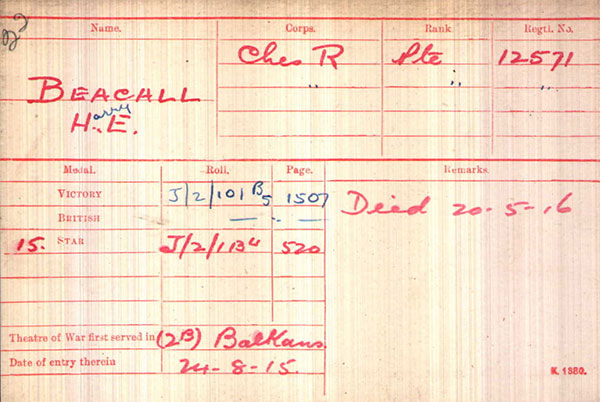 Name. Corps. Rank Regtl. No.
BEACALL Ches R Pte 12571
Harry E. " " "
Medal. Roll. Page. Remarks.
VICTORY J/2/101 B5 1507 Died 20-5-16
BRITISH — " —
15. STAR J/2/1 B4 520
Theatre of War first served in (2B) Balkans.
Date of entry therein 24-8-15.
K. 1380.